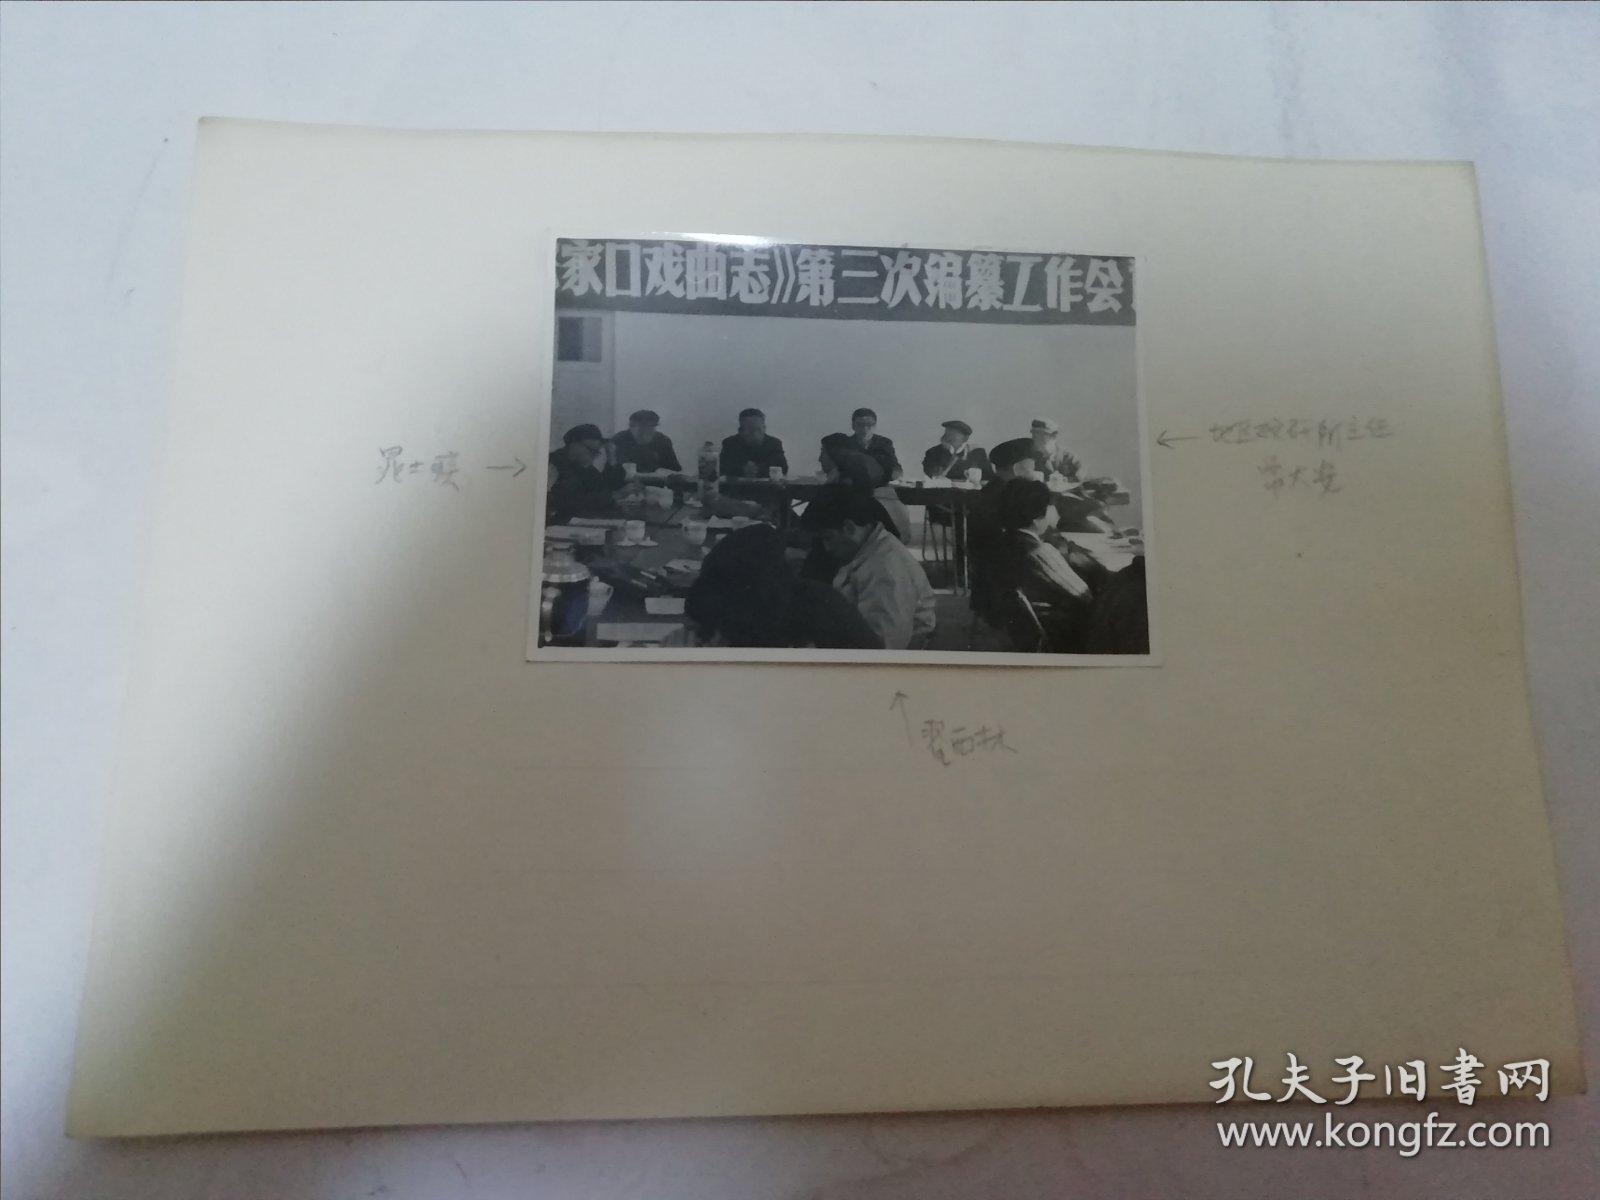 家口戏曲志》第三次编纂工作会
晁士
←地区戏研所主任
常大安
翟西林
孔夫子旧书网
www.kongfz.com